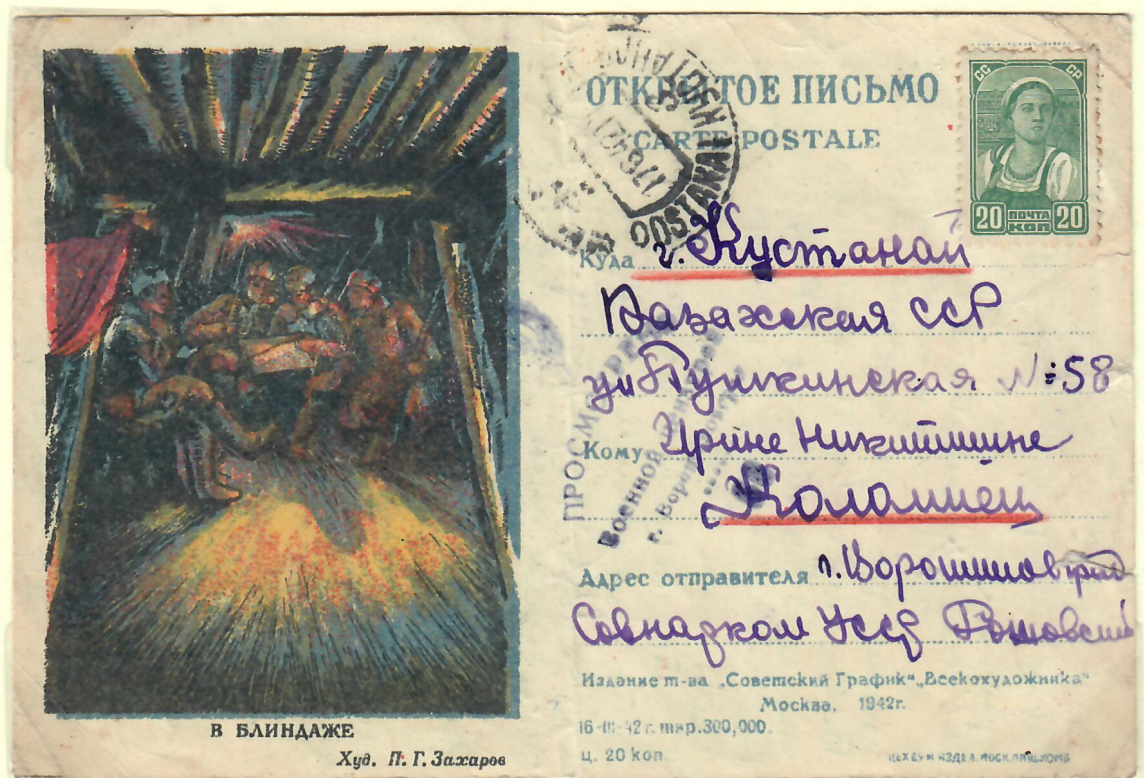 В БЛИНДАЖЕ
Худ. П. Г. Захаров
ОТКРЫТОЕ ПИСЬМО
CARTE POSTALE
СС СР
20 ПОЧТА КОП 20
KOUSTANAI
17 6 42
Куда г. Кустанай
Казахская ССР
ул Пушкинская № 58
Кому Ирине Никитишне
Коломиец
ПРОСМОТРЕНО
Военной Цензурой
г. Ворошиловград
Адрес отправителя г. Ворошиловград
Совнарком УССР
Издание т-ва „Советский График" „Всекохудожника"
Москва, 1942г.
16-III-42 г. тир. 300,000.
ц. 20 коп.